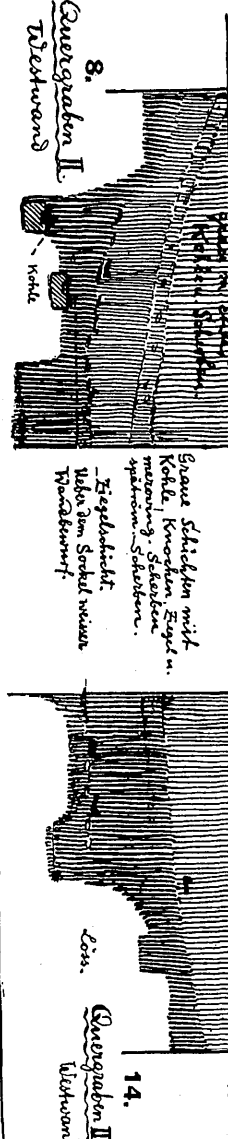 8.
Quergraben II
Westwand
Kohle
Graue Schichten mit
Kohle, Knochen Ziegel u.
meroving. Scherben
spätröm. Scherben.
Ziegelschicht.
Ueber dem Sockel weisser
Wandbewurf.
Löss.
14.
Quergraben II
Westwan